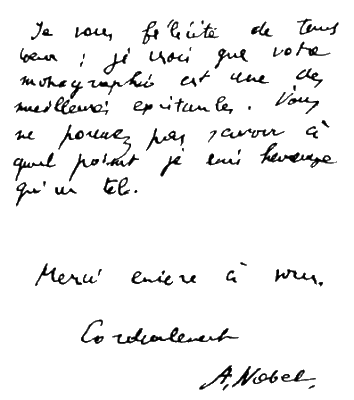 Je vous félicite de tout
cœur ; je crois que votre
monographie est une des
meilleures existantes. Vous
ne pouvez pas savoir à
quel point je suis heureuse
qu'un
Merci encore à vous.
Cordialement
A. Nobel.